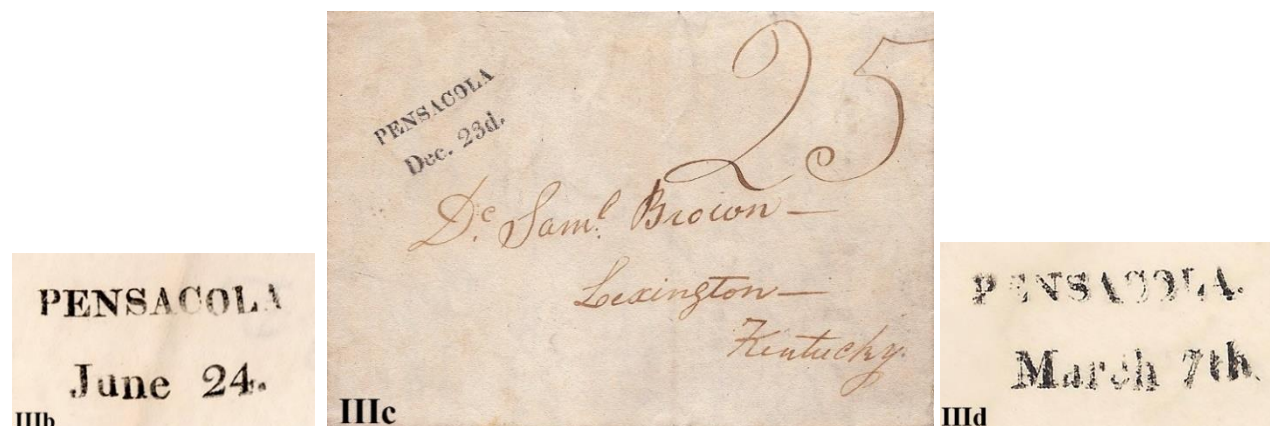 PENSACOLA
June 24.
IIIb
PENSACOLA
Dec. 23d.
25
Dr. Saml. Brown—
Lexington—
Kentucky.
IIIc
PENSACOLA.
March 7th
IIId